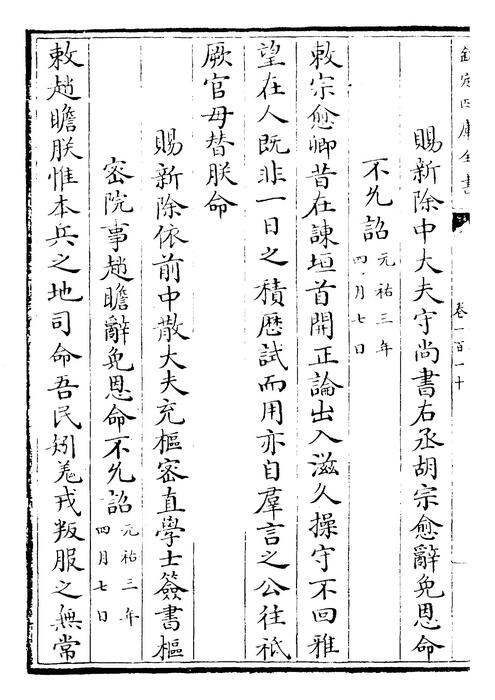 欽定四庫全書
卷一百一十
賜新除中大夫守尚書右丞胡宗愈辭免恩命
不允詔元祐三年四月七日
敕宗愈卿昔在諫垣首開正論出入滋久操守不回雅
望在人既非一日之積歷試而用亦自羣言之公往祗
厥官毋替朕命
賜新除依前中散大夫充樞密直學士簽書樞
密院事趙瞻辭免恩命不允詔元祐三年四月七日
敕趙瞻朕惟本兵之地司命吾民矧羗戎叛服之無常